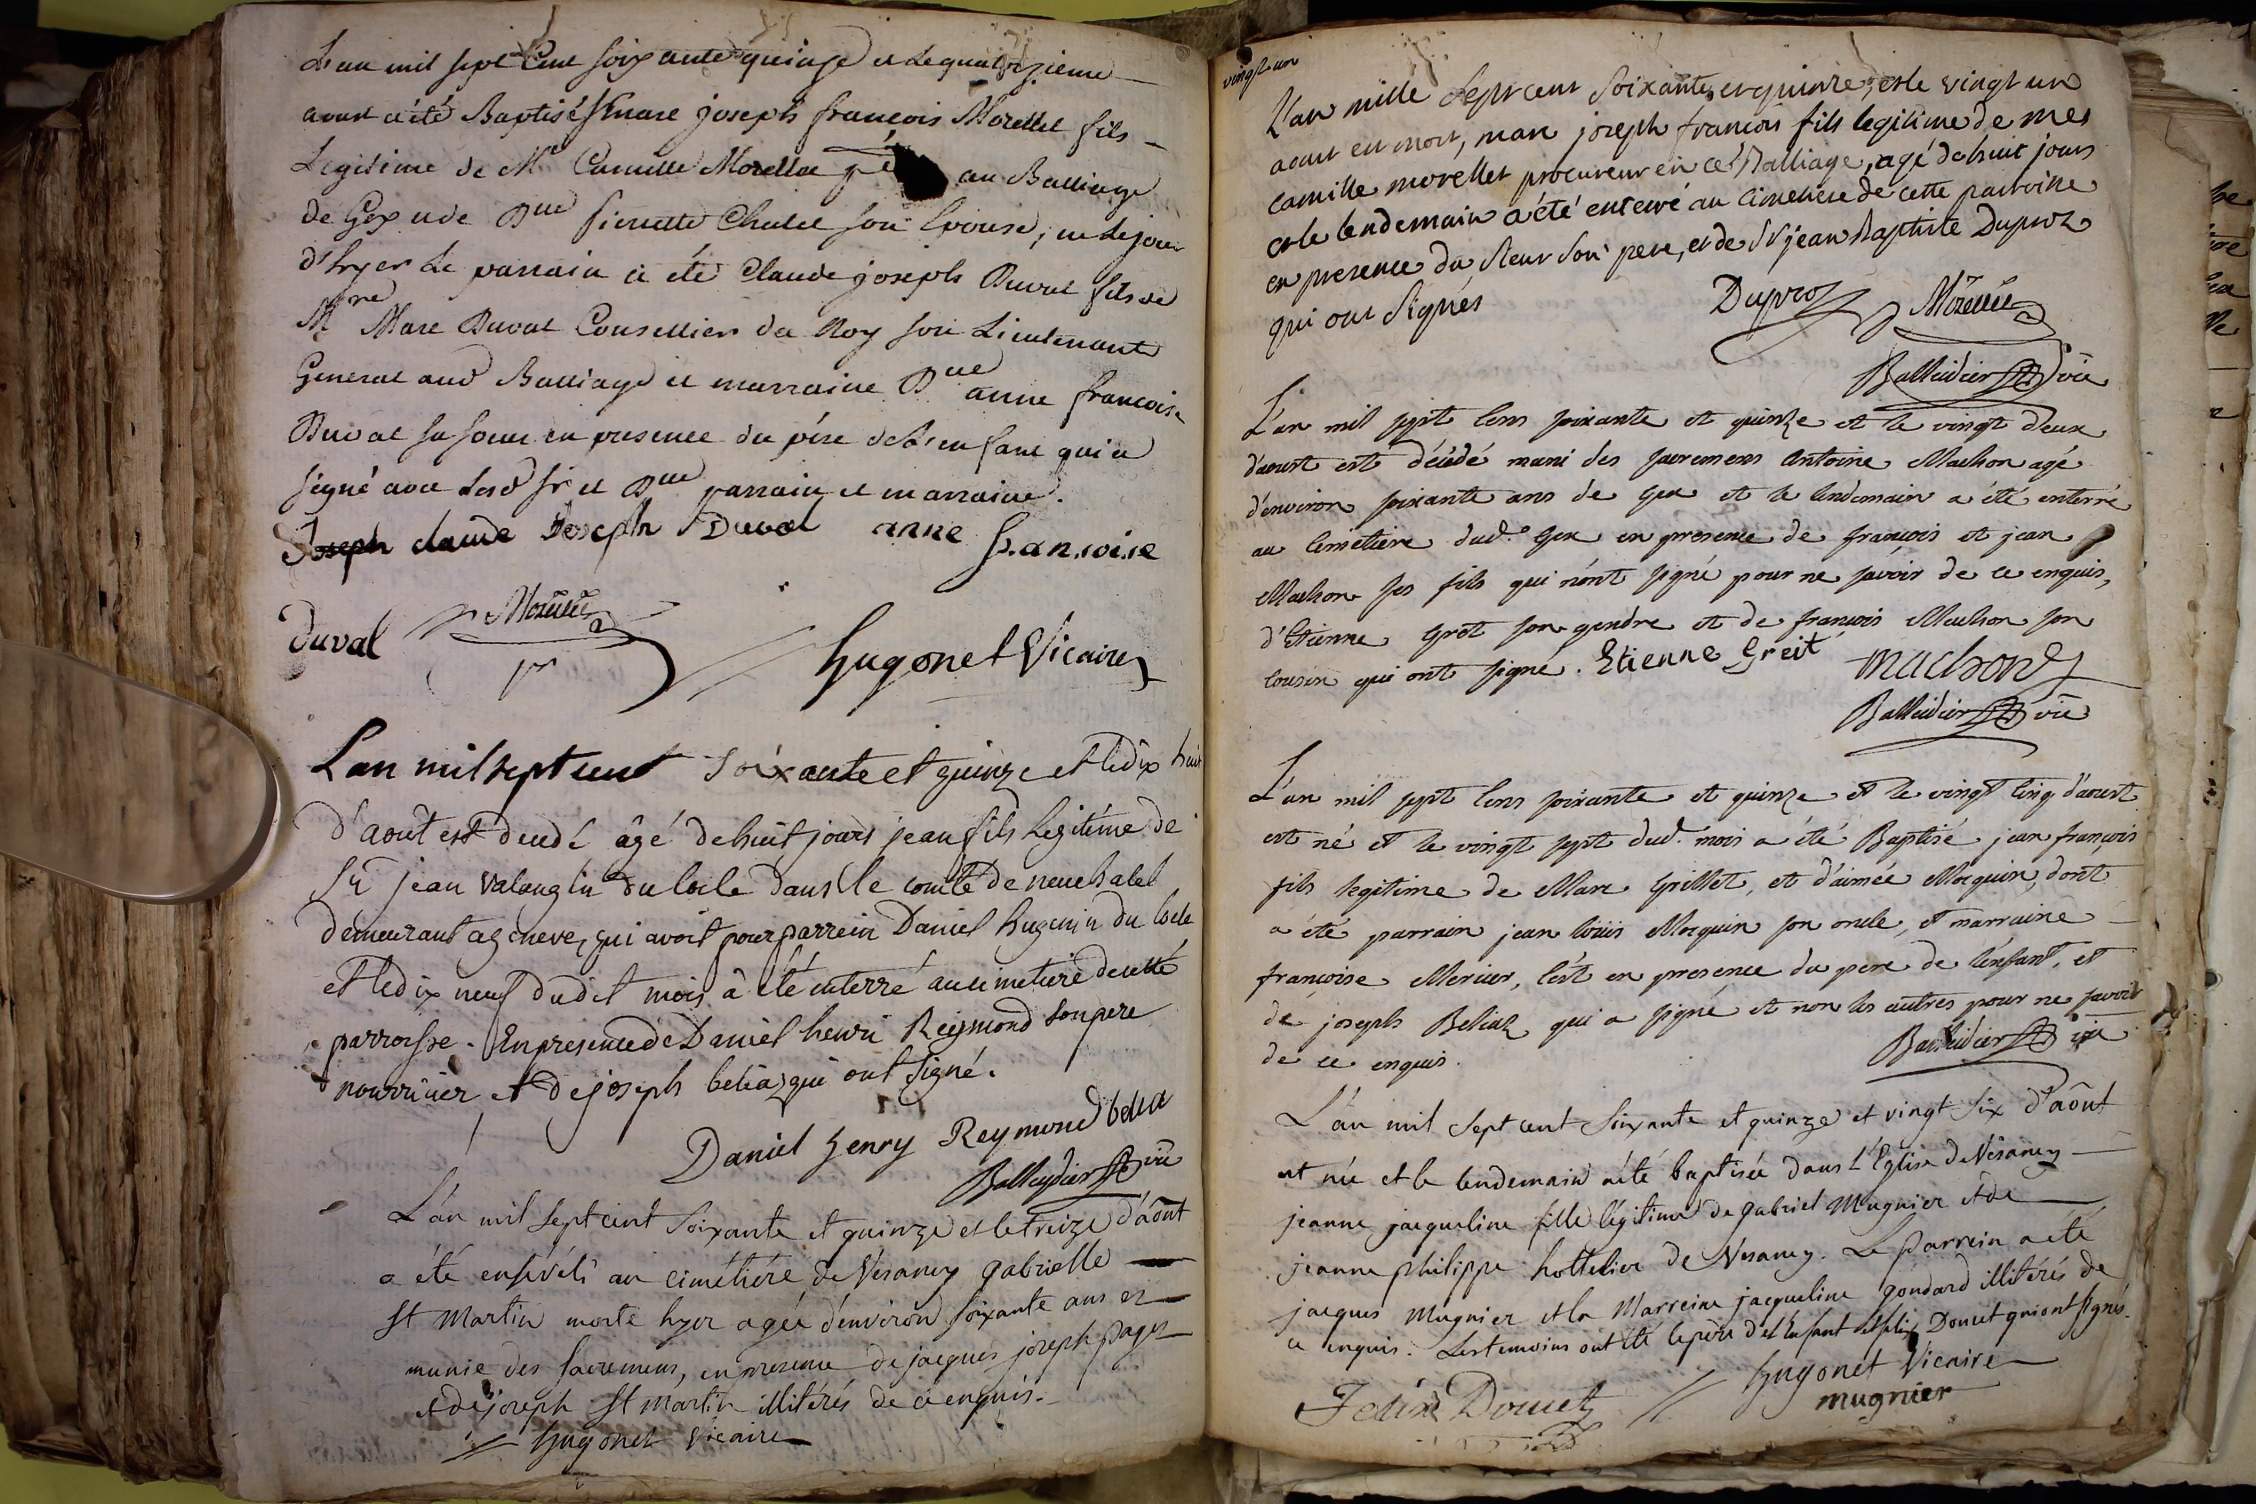 L'an mil sept Cent soixante quinze et le quatorzieme
aoust a été Baptisé marc joseph françois Morellet fils
Legitime de Mr Camille Morellet né au Balliage
de Gex et de Dlle pierrette Chatel son Epouse, né le jour
d'hyer Le parrain a été Claude joseph Duval fils de
Mre Marc Duval Conseillier du Roy son Lieutenant
General aud Balliage et marraine Dlle anne francoise
Duval sa soeur en presence du pére de l'enfant qui a
signé avec lesd sr et Dlle parrain et marraine.
Joseph claude Joseph Duval anne francoise
Duval Morellet
hugonet Vicaire
L'an mil sept cent soixante et quinze et le dix huit
d'août est decedé âgé de huit jours jean fils legitime de
Sr jean valangin du locle dans le comté de neuchatel
demeurant a geneve, qui avoit pour parrein Daniel hugenin du locle
et le dix neuf dudit mois à été enterré au cimetiere de cette
parroisse. En presence de Daniel henri Reymond son pere
nourricier et de joseph beliaz qui ont signé.
Daniel henry Reymond belia
Balleydier vic
L'an mil sept cent soixante et quinze et le treize d'août
a été enséveli au cimétiére de Vésancy gabrielle
St Martin morte hyer agée d'environ soixante ans et
munie des sacremens, en presence de jacques joseph pagez
et de joseph St Martin illitérés de ce enquis.
hugonet vicaire
vingt un
L'an mille sept cent soixante et quinze, et le vingt un
aout est mort, marc joseph francois fils legitime de mes
camille morellet procureur en ce Balliage, agé de huit jours
et le lendemain a été enterré au cimetiere de cette parroisse
en presence du sieur son pere, et de Sr jean Baptiste Duproz
qui ont signés Duproz Morellet
Balleidier vic
L'an mil sept cens soixante et quinze et le vingt deux
d'aoust est décédé muni des sacremens Antoine Machon agé
d'environ soixante ans de Gex et le lendemain a été enterré
au Cimetiere dud. Gex en presence de françois et jean
Machon ses fils qui n'ont signé pour ne savoir de ce enquis,
d'Etienne Gret son gendre et de françois Machon son
cousin qui ont signé. Etienne Greit machon
Balleidier vic
L'an mil sept cens soixante et quinze et le vingt cinq d'aoust
est né et le vingt sept dud. mois a été Baptisé jean françois
fils legitime de Marc Grillet, et d'aimée Moquin, dont
a été parrain jean louis Moquin son oncle, et marraine
françoise Mercier, c'est en presence du pere de l'enfant, et
de joseph Beliaz qui a signé et non les autres pour ne savoir
de ce enquis. Balleidier vic
L'an mil sept cent soixante et quinze et vingt six d'août
est née et le lendemain a été baptisée dans l'Eglise de Vésancy
jeanne jacqueline fille légitime de gabriel Mugnier et de
jeanne philippe hottelier de Vesancy. Le parrein a été
jacques Mugnier et la Marreine jacqueline goudard illitérés de
ce enquis. Les temoins ont été le pére de l'Enfant et felix Doucet qui ont signés.
hugonet Vicaire
Felix Doucet mugnier